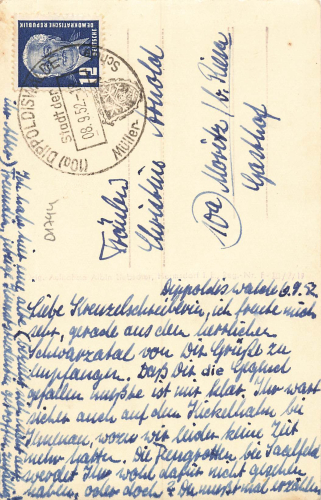 DEUTSCHE
DEMOKRATISCHE REPUBLIK
12
(10a) DIPPOLDISW
Stadt der
08.9.52.-
Müller-
Sch
Fräulein
Christius Arnold
10a Moritz / b. Riesa
Gasthof
Dippoldiswalde 6.9.52
Liebe Kreuzelschreiberin, ich freute mich
sehr, gerade aus dem herrlichen
Schwarzatal von Dir Grüße zu
empfangen. Daß Dir die Gegend
gefallen mußte ist mir klar. Ihr wart
sicher auch auf dem Kickelhahn bei
Ilmenau, wozu wir leider keine Zeit
mehr hatten. Die Feengrotten bei Saalfeld
werdet Ihr wohl dafür nicht gesehen
haben, oder doch? Du mußt mal erzählen